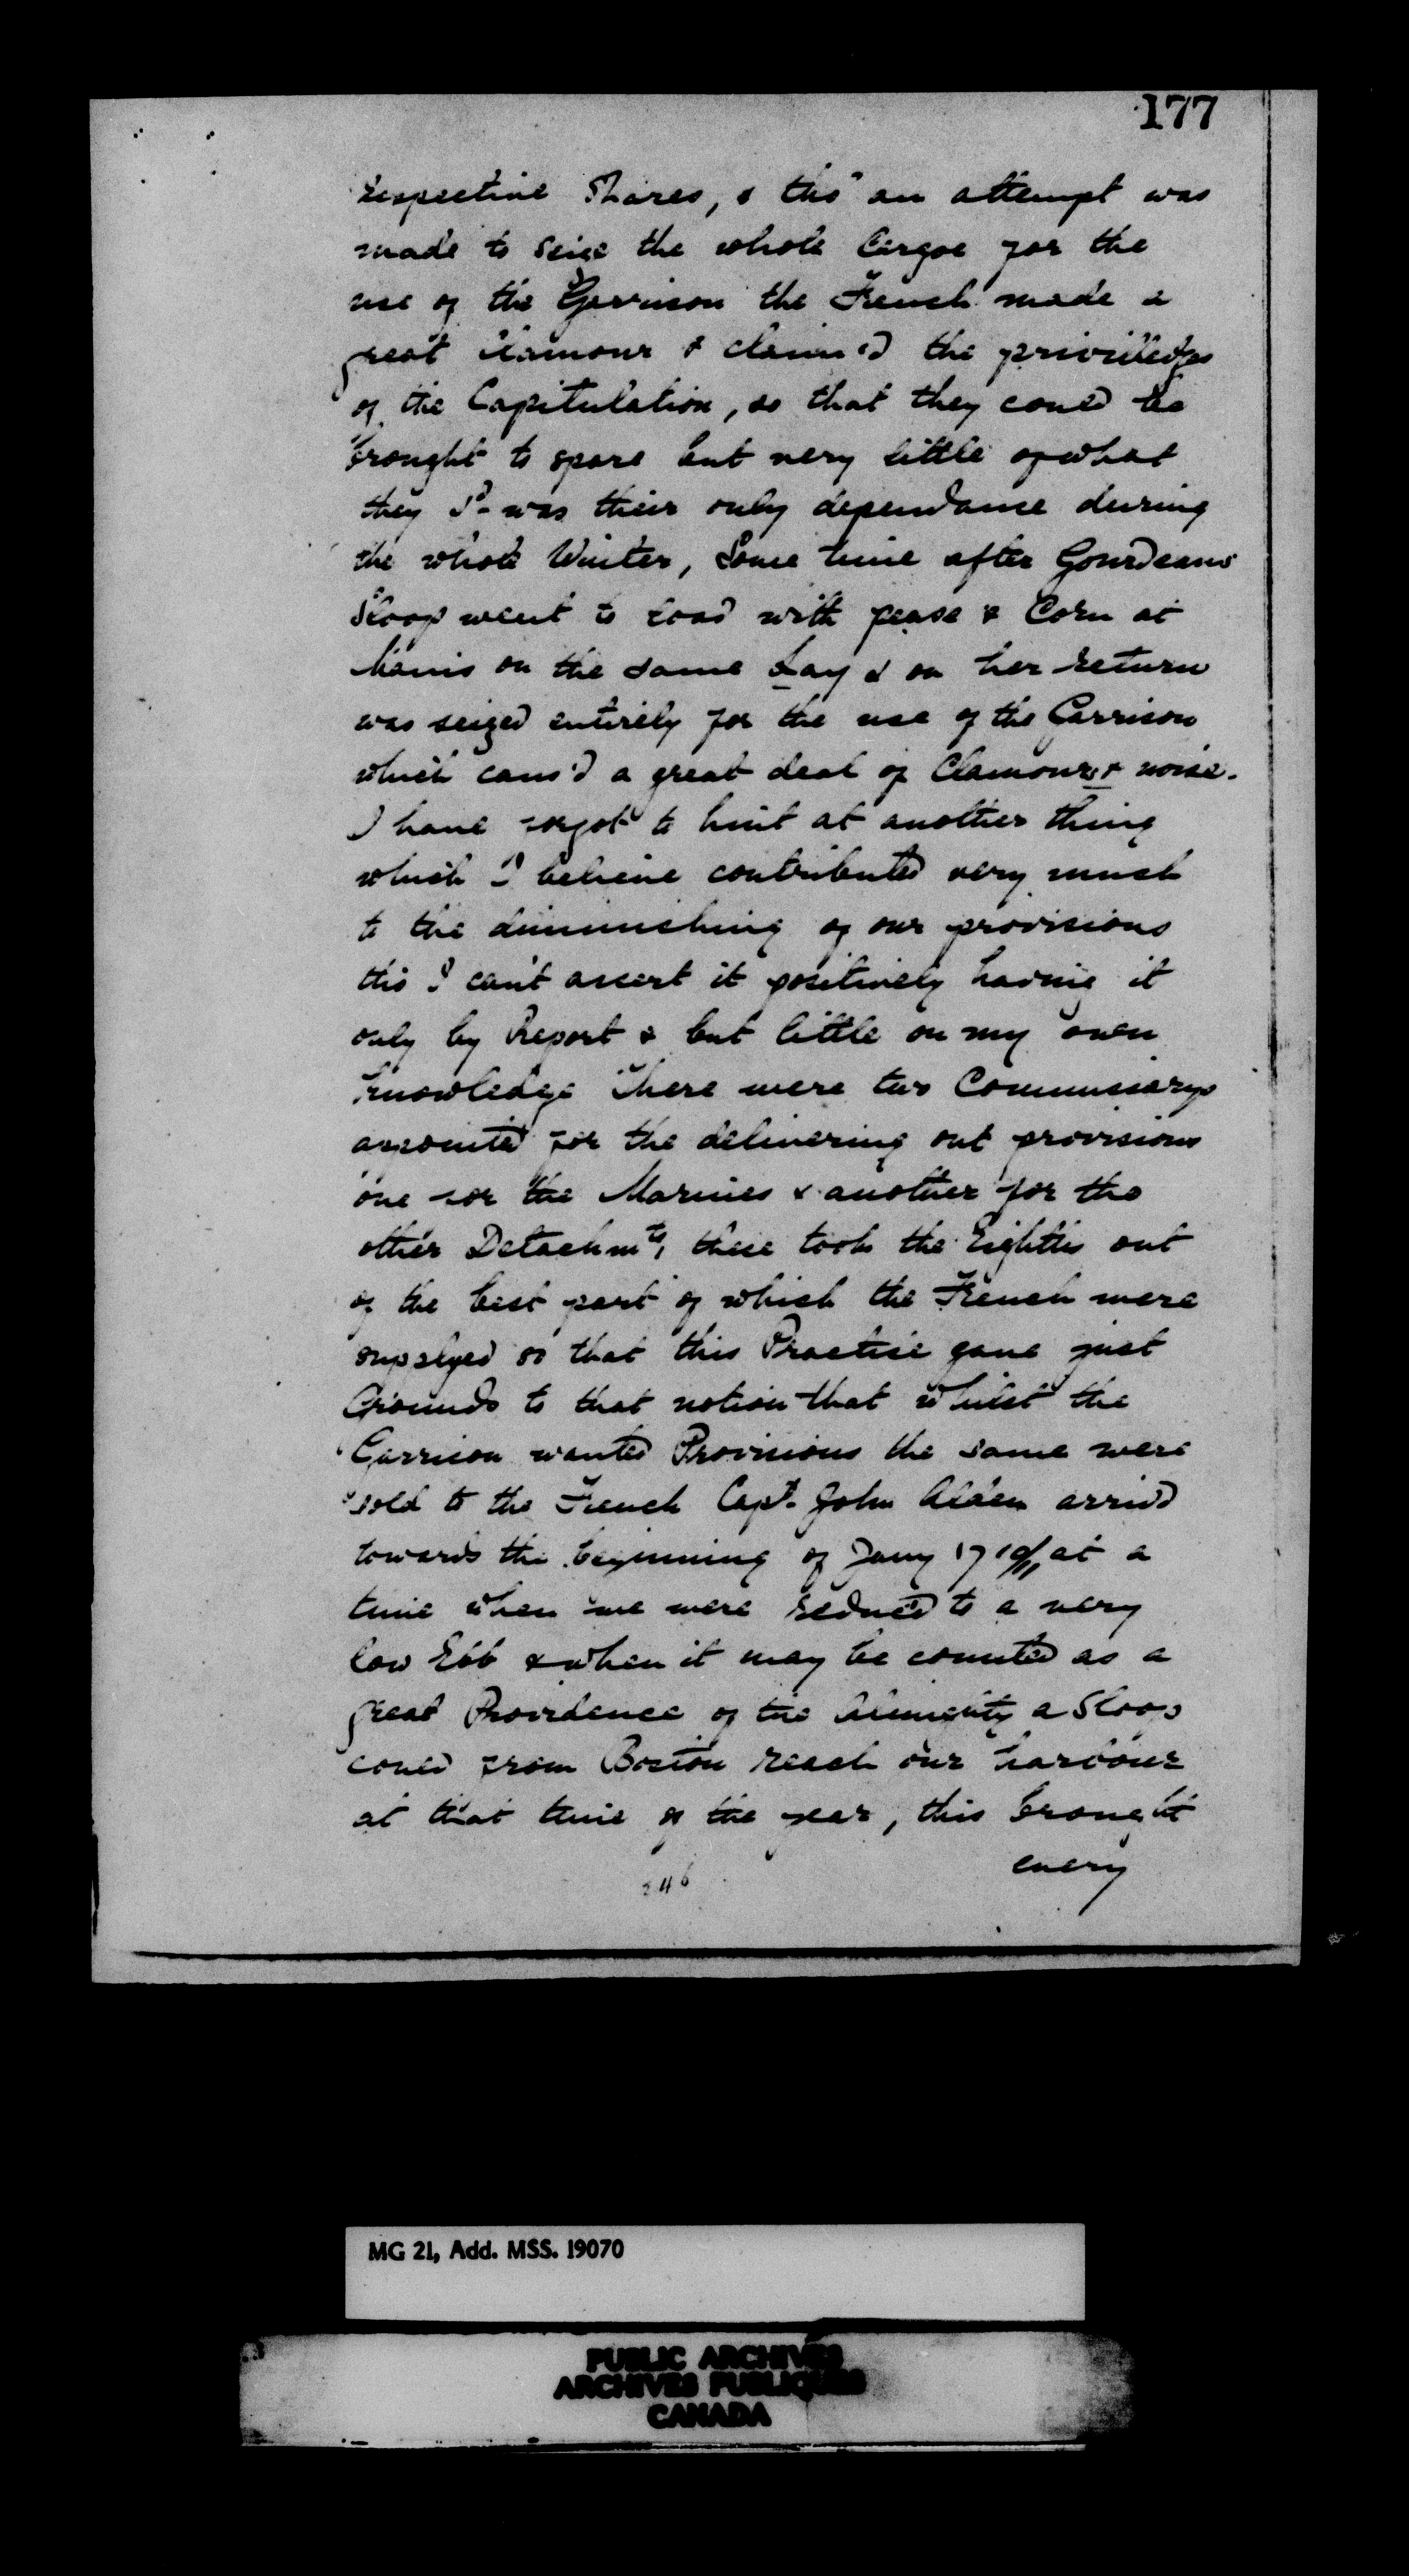 177
respective Shares, & tho' an attempt was
made to seize the whole Cargoe for the
use of the Garrison the French made a
great Clamour & claim'd the priviledges
of the Capitulation, so that they coued be
brought to spare but very little of what
they sd was their only dependance during
the whole Winter, Some time after Gourdeaus
Sloop went to load with pease & Corn at
Manis on the same Lay & on her return
was seized entirely for the use of the Garrison
which caus'd a great deal of Clamour & noise.
I have forgot to hint at another thing
which I believe contributed very much
to the diminishing of our provisions
tho I can't assert it positively having it
only by Report & but little on my own
knowledge There were two Commissarys
appointed for the delivering out provisions
one for the Marines & another for the
other Detachmts, these took the Eighths out
of the best part of which the French were
supplyed so that this Practise gave just
Grounds to that notion that whilst the
Garrison wanted Provisions the same were
sold to the French Capt. John Alden arrivd
towards the beginning of Jany 1710/11 at a
time when we were reduced to a very
low Ebb & when it may be counted as a
great Providence of the Almighty a Sloop
coued from Boston reach our harbour
at that time of the year, this brought
every
246
MG 21, Add. MSS. 19070
PUBLIC ARCHIVES
ARCHIVES PUBLIQUES
CANADA